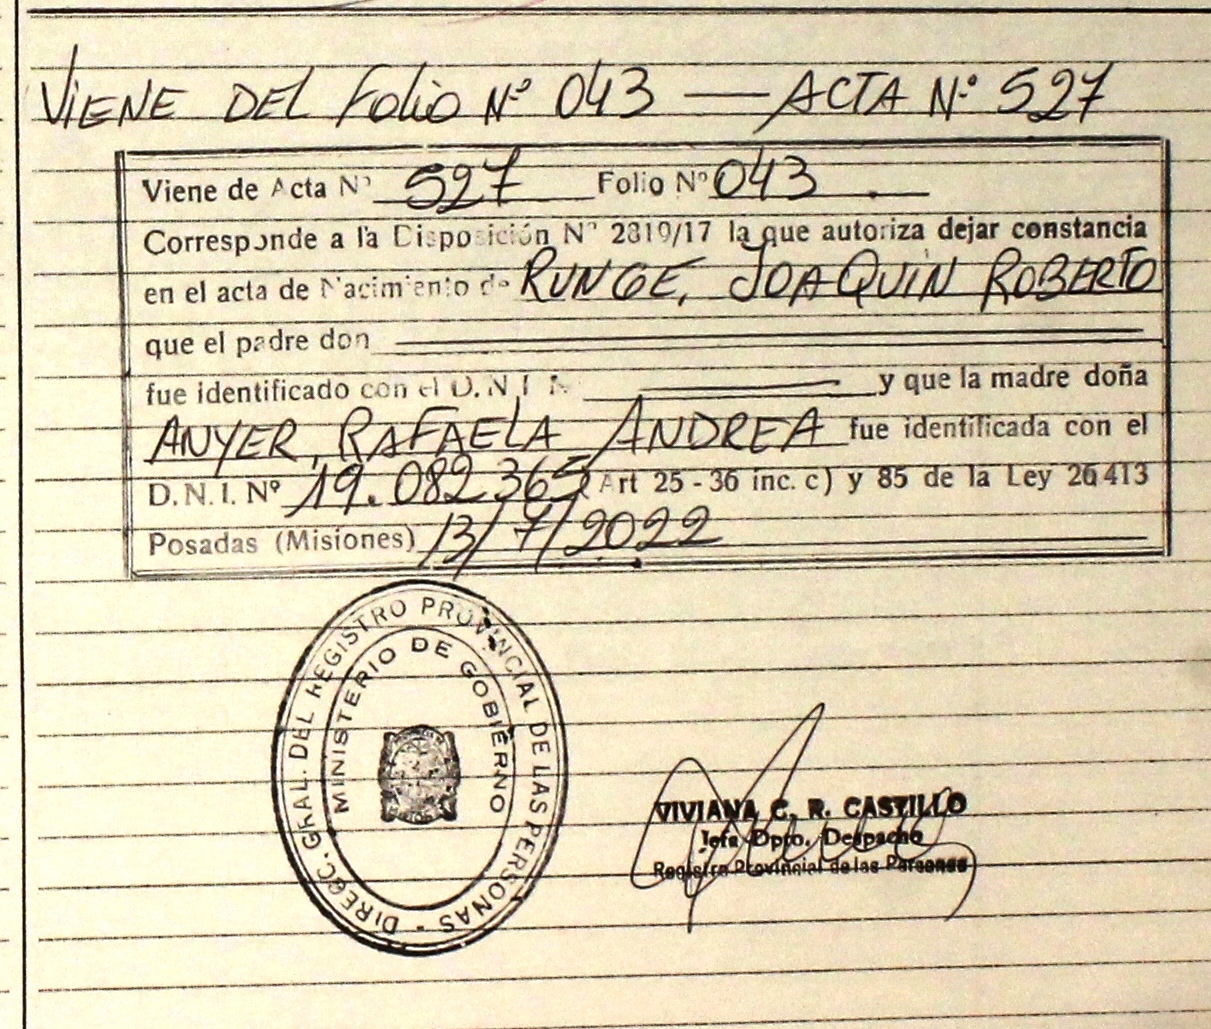 VIENE DEL FOLIO Nº 043 — ACTA Nº 527
Viene de Acta Nº 527 Folio Nº 043
Corresponde a la Disposición Nº 2819/17 la que autoriza dejar constancia
en el acta de Nacimiento de RUNGE, JOAQUÍN ROBERTO
que el padre don
fue identificado con el D.N.I. N y que la madre doña
ANYER, RAFAELA ANDREA fue identificada con el
D.N.I. Nº 19.082.365 (Art 25 - 36 inc. c) y 85 de la Ley 26413
Posadas (Misiones) 13/7/2022
DIRECC. GRAL. DEL REGISTRO PROVINCIAL DE LAS PERSONAS -
MINISTERIO DE GOBIERNO
VIVIANA C. R. CASTILLO
Jefa Dpto. Despacho
Registro Provincial de las Personas